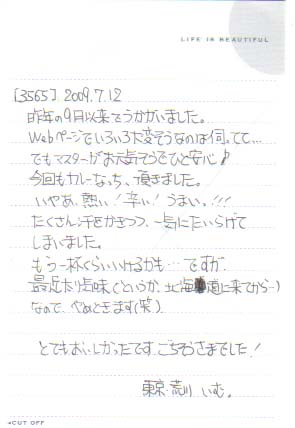 LIFE IS BEAUTIFUL
[3565] 2009.7.12
昨年の9月以来でうかがいました。
Webページでいろいろ大変そうなのは伺ってて…
でもマスターがお元気そうでひと安心♪
今回もカレーなっち、頂きました。
いやぁ、熱い!辛い!うまい。!!!
たくさん汗をかきつつ、一気にたいらげて
しまいました。
もう一杯くらいいけるかも…ですが、
最近太り気味(というか、北海道に来てから…)
なので、やめときます(笑)
とてもおいしかったです。ごちそうさまでした!
東京・荒川 いむ。
CUT OFF